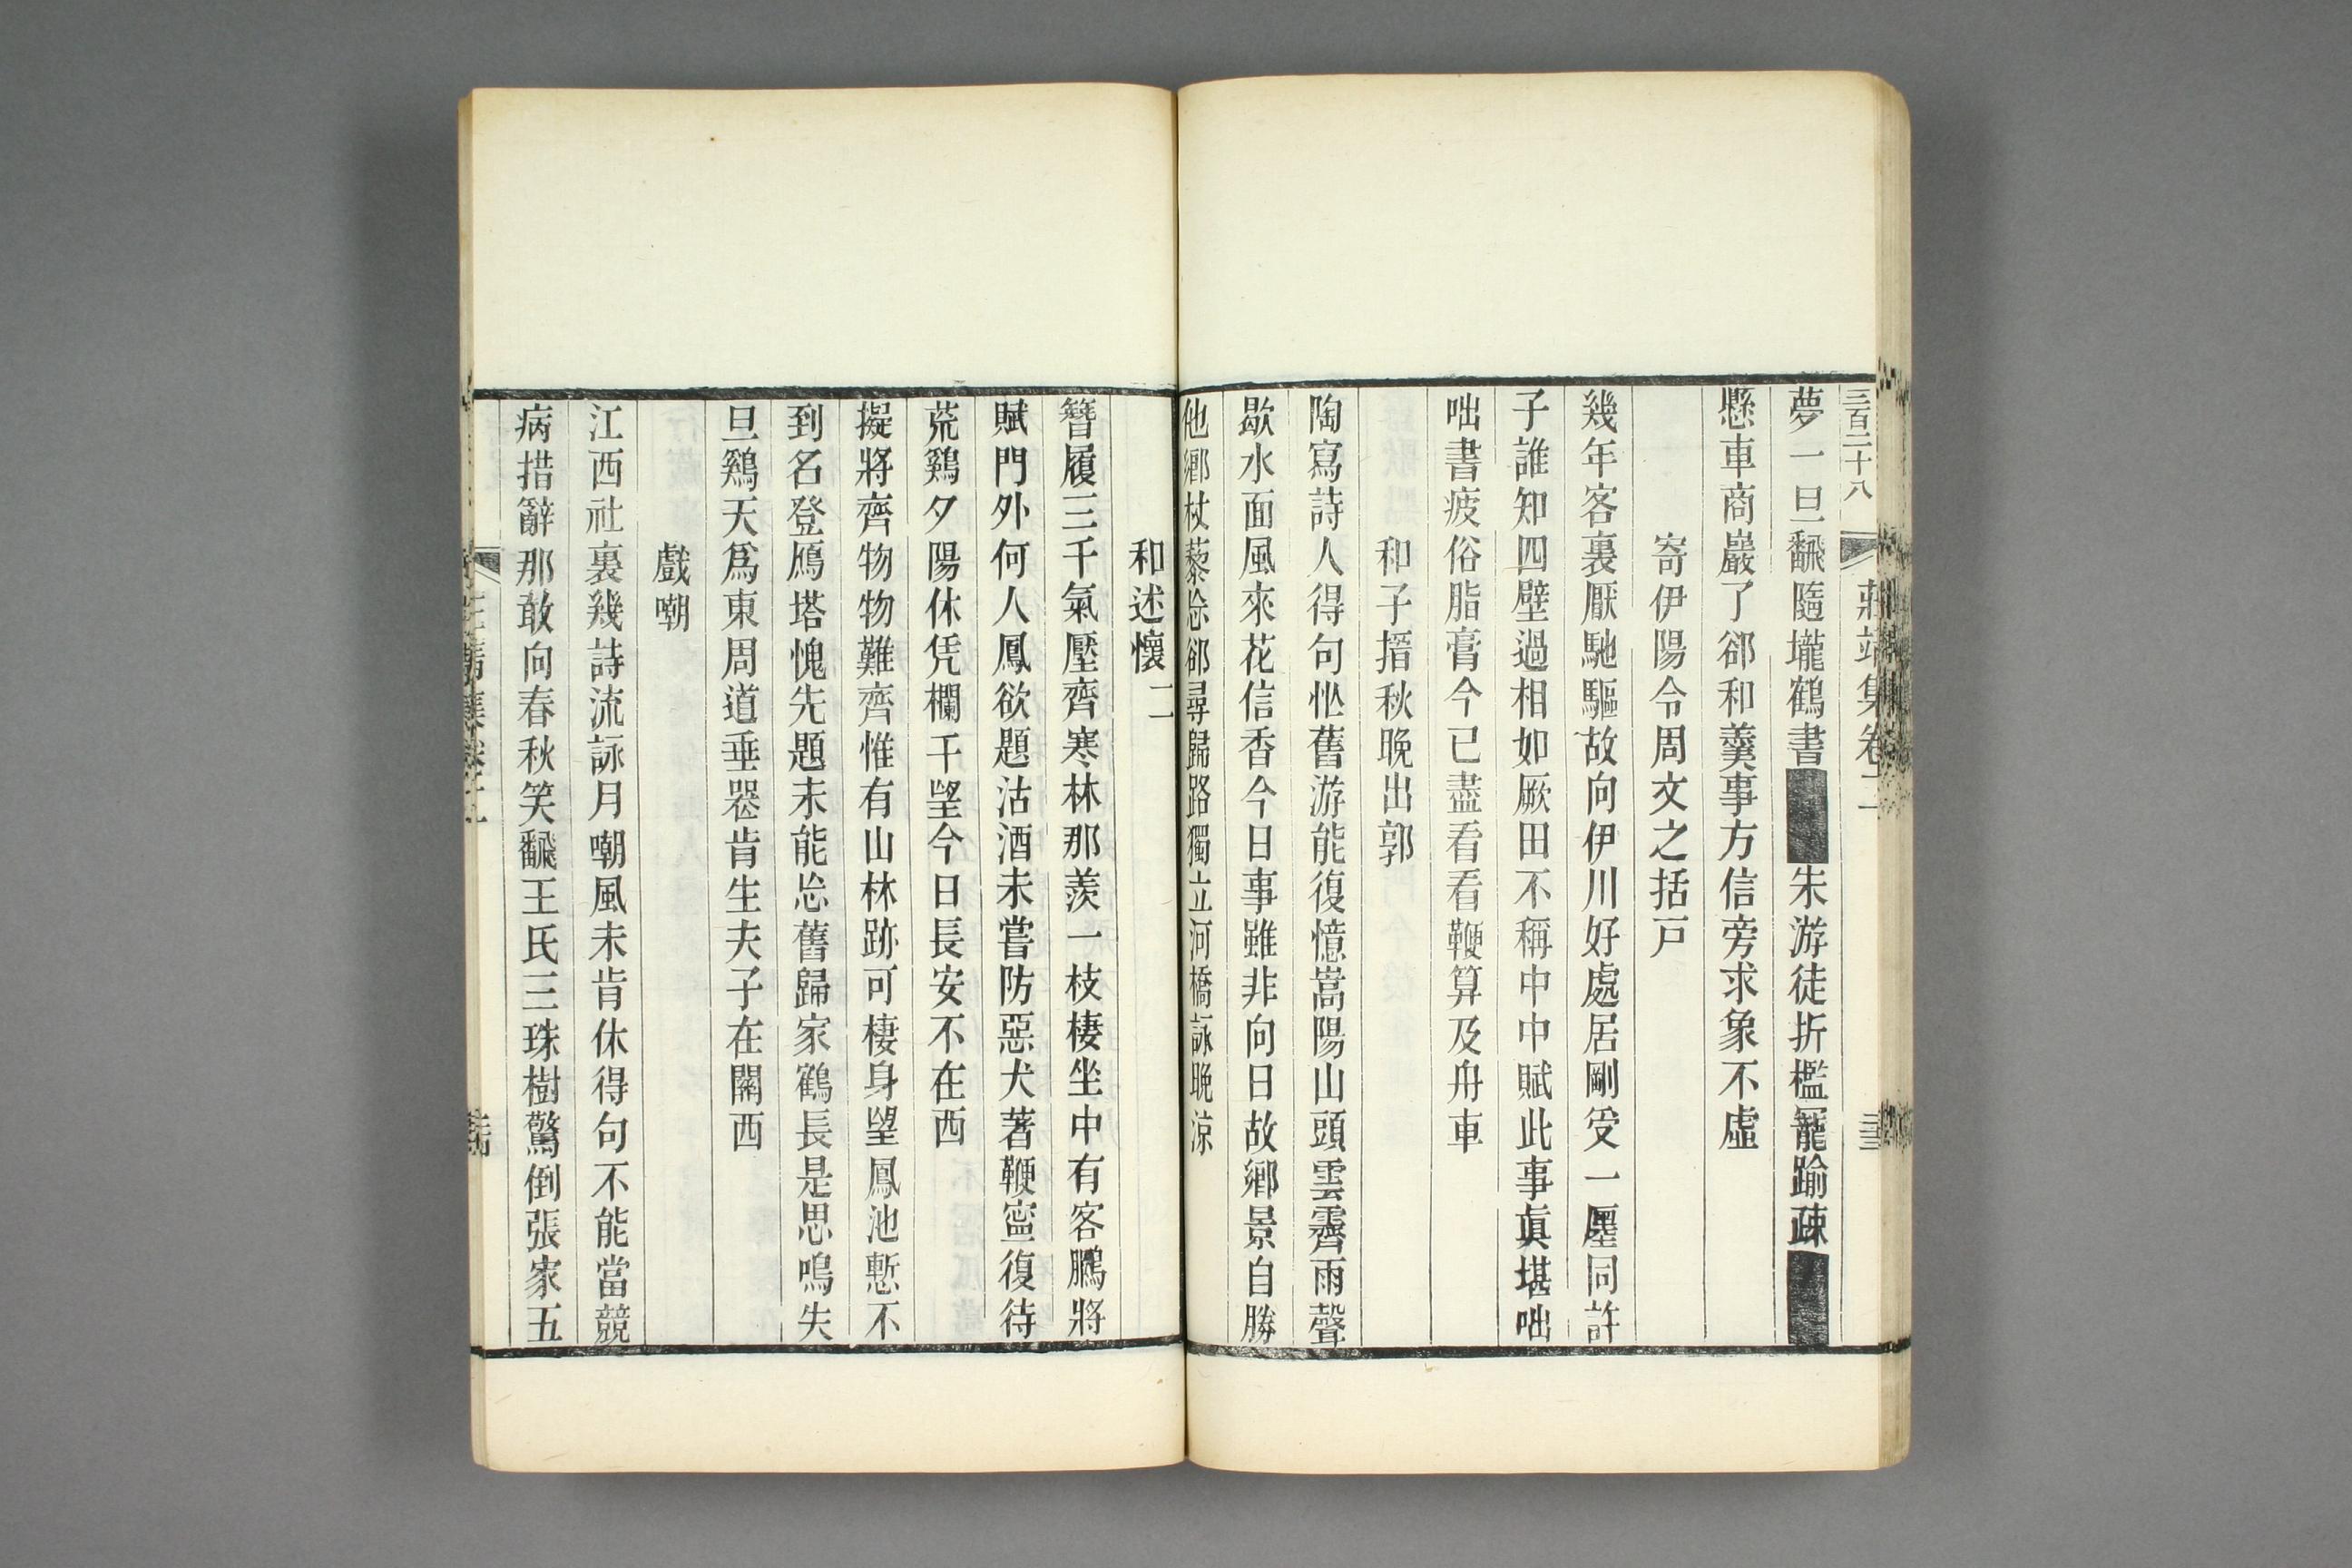 三百二十八
莊靖集卷二
夢一旦飜隨壠鶴書■■朱游徒折檻寵踰疎■■
懸車商巖了郤和羹事方信旁求象不虛
寄伊陽令周文之括戸
幾年客裏厭馳驅故向伊川好處居剛受一廛同許
子誰知四壁過相如厥田不稱中中賦此事眞堪咄
咄書疲俗脂膏今已盡看看鞭算及舟車
和子搢秋晚出郭
陶寫詩人得句怭舊游能復憶嵩陽山頭雲霽雨聲
歇水面風來花信香今日事雖非向日故鄉景自勝
他鄉杖藜忩郤尋歸路獨立河橋詠晚涼
和述懷二
簪履三千氣壓齊寒林那羨一枝棲坐中有客鵬將
賦門外何人鳳欲題沽酒未嘗防惡犬著鞭寍復待
荒鷄夕陽休凭欄干望今日長安不在西
擬將齊物物難齊惟有山林跡可棲身望鳳池慙不
到名登鴈塔愧先題未能忩舊歸家鶴長是思鳴失
旦鷄天爲東周道垂器肯生夫子在關西
戲嘲
江西社裏幾詩流詠月嘲風未肯休得句不能當競
病措辭那敢向春秋笑飜王氏三珠樹驚倒張家五